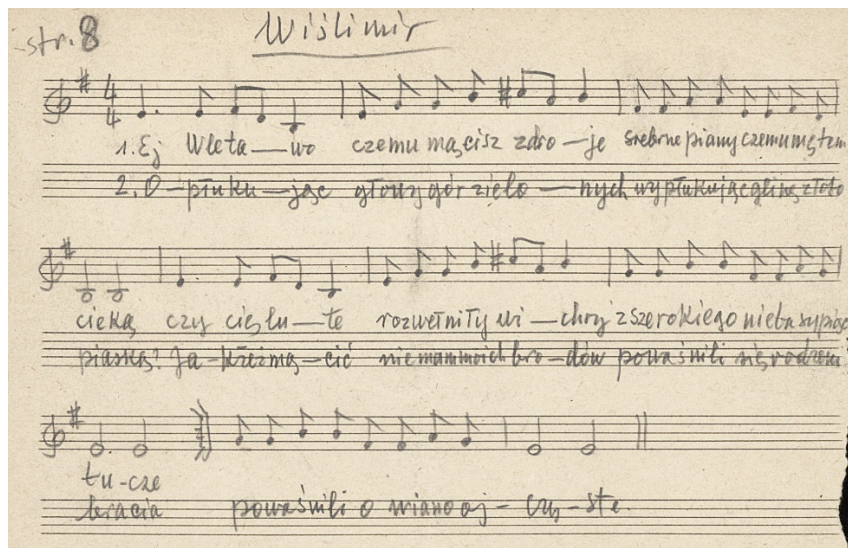 str. 8 Wiślimir
4 4
1. Ej Wełta—wo czemu mącisz zdro—je srebrne piany czemu mętn
2. O—płuku—jąc głowy gór zielo—nych wypłukując glinę złoto
cieką czy cię lu—te rozwełniły wi—chry z szerokiego nieba sypiąc
piaską? Ja—kże żmą—cić nie mam moich bro—dów powaśnili się rodzeni
tu-cze
bracia powaśnili o wiano oj-czy-ste.